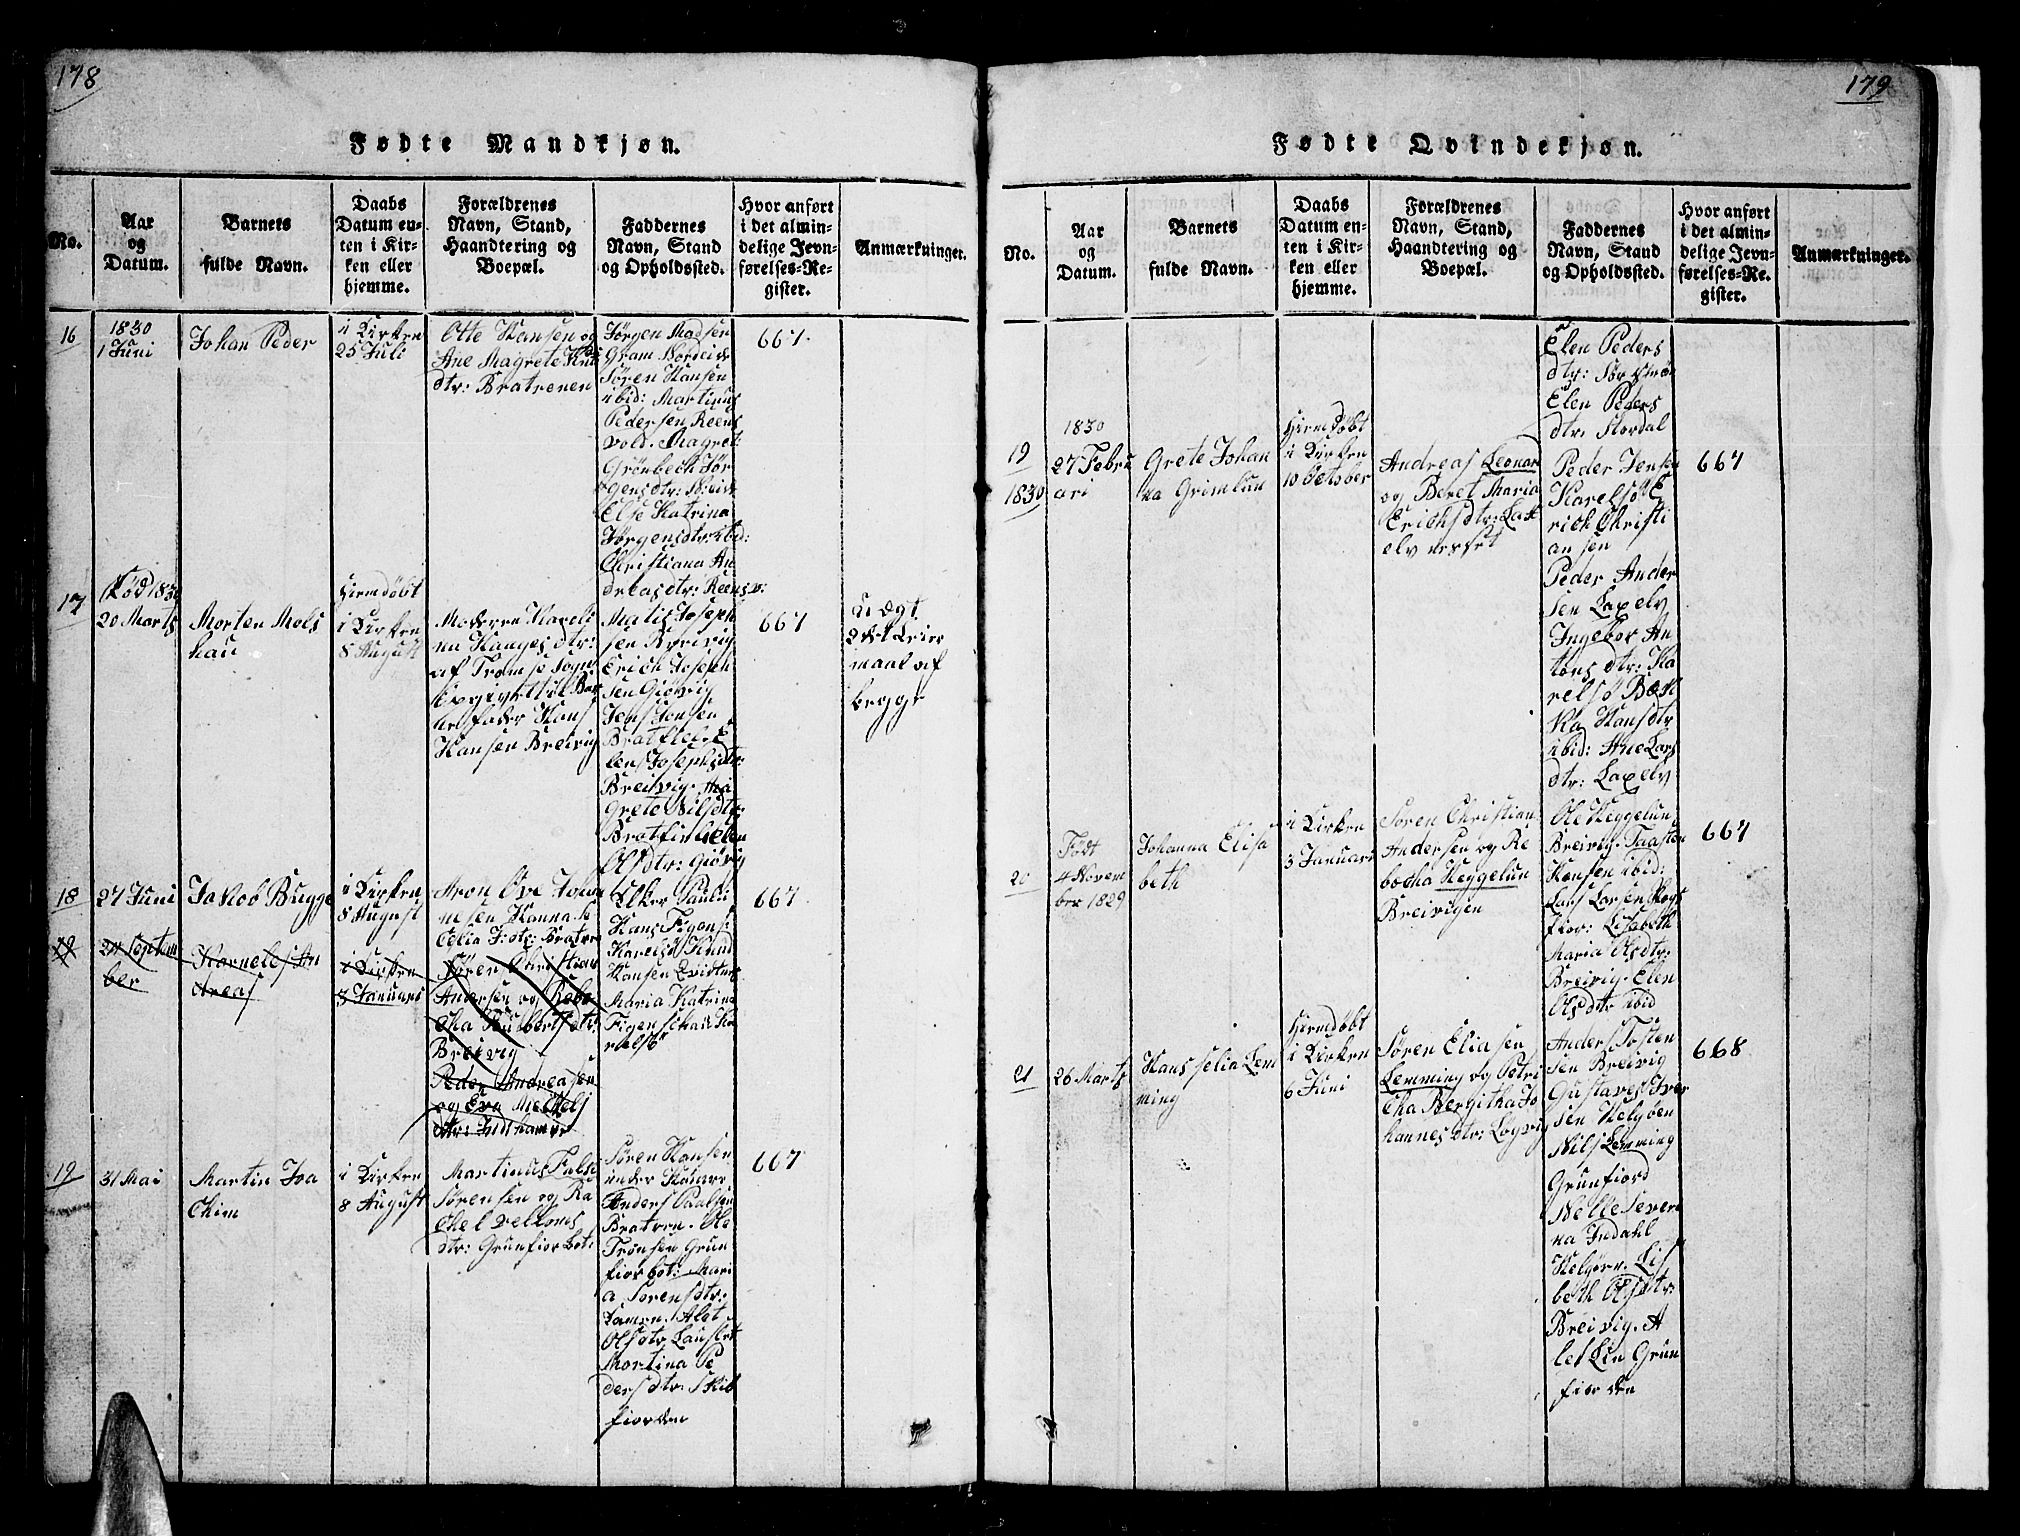 178
Fødte Mandkjøn.
No.
Aar
og
Datum.
Barnets
fulde Navn.
Daabs
Datum en-
ten i Kir-
ken eller
hjemme.
Forældrenes
Navn, Stand,
Haandtering og
Boepæl.
Faddernes
Navn, Stand
og Opholdssted.
Hvor anført
i det almin-
delige Jevn-
førelses-Re-
gister.
Anmærkninger.
16
1830
1 Juni
Johan Peder
i Kirken
25 Juli
Otte Hansen og
Ane Magrete Knu
dtr: Bratrenen
Jørgen Madsen
Gram Nordeide
Søren Hansen
ibid: Martinus
Pedersen Reens
vold. Magret
Grønbech Jør
gensdtr: Noreide
Else Katrina
Jørgensdtr ibid:
Christiana An
dreasdtr: Reensv:
667.
17
Fød 1830
20 Marts
Morten Mols
hau
Hiemdøbt
i Kirken
8 August
Moderen Kareli
na Hanges dtr:
af Tromsø Sogn
Opgivet til Bar
nefader Hans
Hansen Breivig
Matis Joseph
sen Breivig
Erich Joseph
sen Giøvig
Jens Jonsen
Bratfiel: E
len Josephsdtr:
Breivig. Ma
Grete Nilsdtr:
Bratfiel Elen
Olsdtr: Giøvig
667
U Ægt
2det Leier
maal af
begge
18
27 Juni
Jakob Bugge
i Kirken
8 August
Aron Ove Johan
nesen Hanna Se
Celia J:dtr: Bratre
Elker Pauli
Hans Figens:
Karelsø Knud
Hansen Qvidtnes
Maria Katrina
Figenschau Ka
relsø
667
19
27 Septem
ber
Karneles An
dreas
i Kirken
3 Januars
Søren Christian
Andersen og Rebe
cha Hulbertsdtr:
Breivig
Peder Andreasen
og Eva Michels
dtr: Indthamre
19
31 Mai
Martin Joa
Chim
i Kirken
8 August
Martinus False
Sørensen og Ra
Chel Velloms
dtr: Grunfior Bot:
Søren Hansen
under Houare
Anders Paalsen
Bratren. Ole
Tronsen Grun
fior bot: Mari
a Sørensdtr:
Lamen. Alet
Olsdtr Lauslet
Mortina Pe
dersdtr: Skib
fiorden
667
179
Fødte Qvindekjøn.
No.
Aar
og
Datum.
Barnets
fulde Navn.
Daabs
Datum en-
ten i Kir-
ken eller
hjemme.
Forældrenes
Navn, Stand,
Haandtering og
Boepæl.
Faddernes
Navn, Stand
og Opholdssted.
Hvor anført
i det almin-
delige Jevn-
førelses-Re-
gister.
Anmærkninger.
Elen Peders
dtr: Sørstrøm
Elen Peders
dtr: Stordal
19
1830
1830
27 Febru
ari
Grete Johan
na Grimlun
Hiemdøbt
i Kirken
10 October
Andreas Leonar
og Beret Maria
Erichsdtr: Lax
elv nesset
Peder Jensen
Karelsø E
rich Christi
ansen
Peder Ander
sen Laxelv
Ingebor An
tons dtr: Ka
relsø Bæk
ka Hansdtr
ibid: Ane Lars
dtr: Laxelv
667
20
Født
4 Novem
ber 1829
Johanna Elisa
beth
i Kirken
3 Januari
Søren Christian
Andersen og Re
becha Heggelun
Breivigen
Ole Heggelun
Breivig. Taasten
Hansen ibid:
Lars Larsen Kogs
fior: Lisabeth
Maria Olsdtr:
Breivig. Elen
Olsdtr ibid
667
21
26 Marts
Hans selia Lem
ming
Hiemdøbt
i Kirken
6 Juni
Søren Eliasen
Lemming og Petri
Cha Bergitha Jo
hannes dtr: Løgvig
Anders Tosten
sen Breivig
Gustaves Iver
sen Helgøen
Nils Lemming
Grunfiord
Nelle Severi
na Indahl
Helgøen. Lis
beth Olsdtr:
Breivig. A
let Lin Grun
fiorden
668